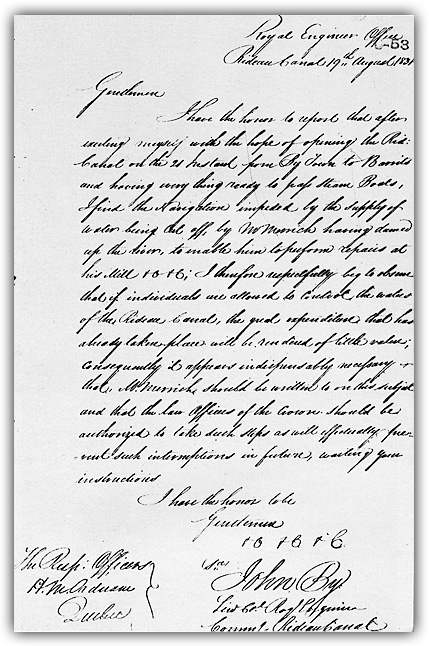 Royal Engineer Office
-53
Rideau Canal 19th August 1831
Gentlemen
I have the honor to report that after
exerting myself with the hope of opening the Rid:
Canal on the 21 Instant from By Town to Burritts
and having every thing ready to pass Steam Boats,
I find the Navigation impeded by the supply of
water being Cut off, by Mr Merrick having damed
up the river, to enable him to perform repairs at
his Mill &c &c; I therefore respectfully beg to observe
that if individuals are allowed to control the waters
of the Rideau Canal, the great expenditure that has
already taken place will be rendered of little value;
consequently it appears indispensably necessary
that Mr Merrick should be written to on this subject
and that the law Officers of the Crown should be
authorized to take such steps as will effectually pre-
vent such interruptions in future, waiting your
instructions
I have the honor to be
Gentlemen
&c &c &c
The Resp: Officers
H. M. Ordnance
Quebec
John By
Lieut Col. Royl Engineers
Commg. Rideau Canal